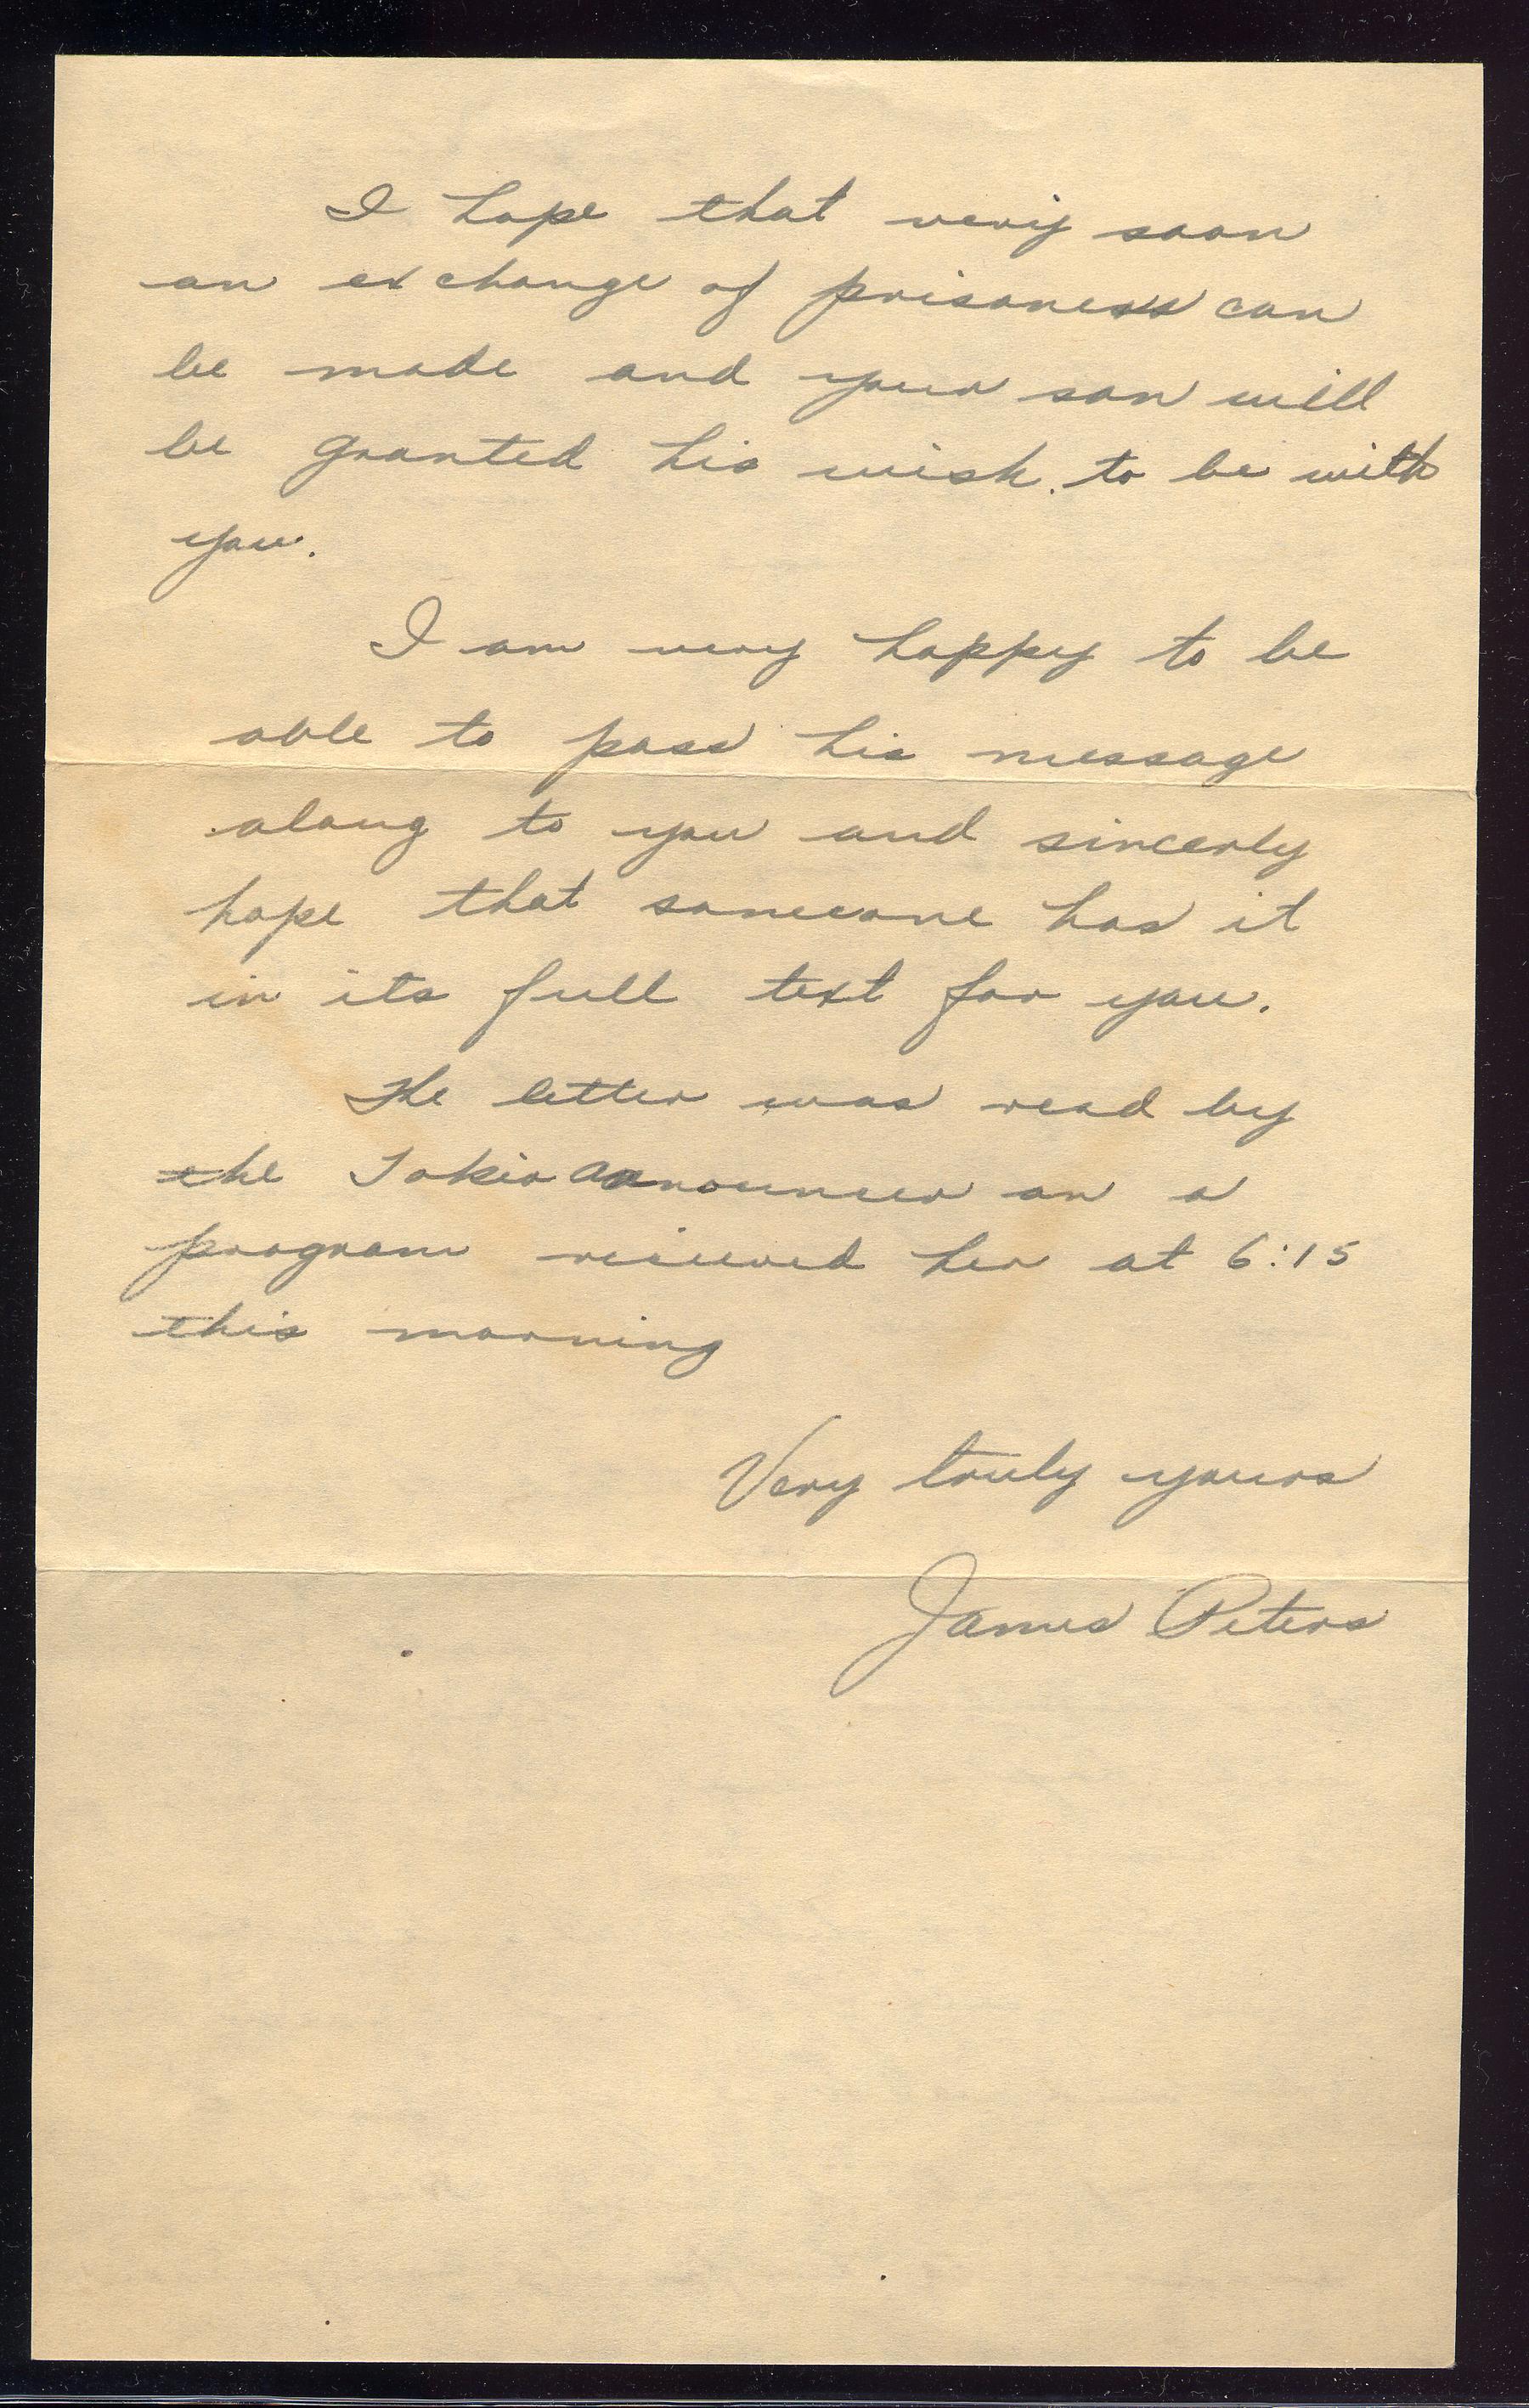 I hope that very soon
an exchange of prisoners can
be made and your son will
be granted his wish to be with
you.
I am very happy to be
able to pass his message
along to you and sincerly
hope that someone has it
in its full text for you.
The letter was read by
the Tokio announcer on a
program recieved her at 6:15
this morning
Very truly yours
James Peters